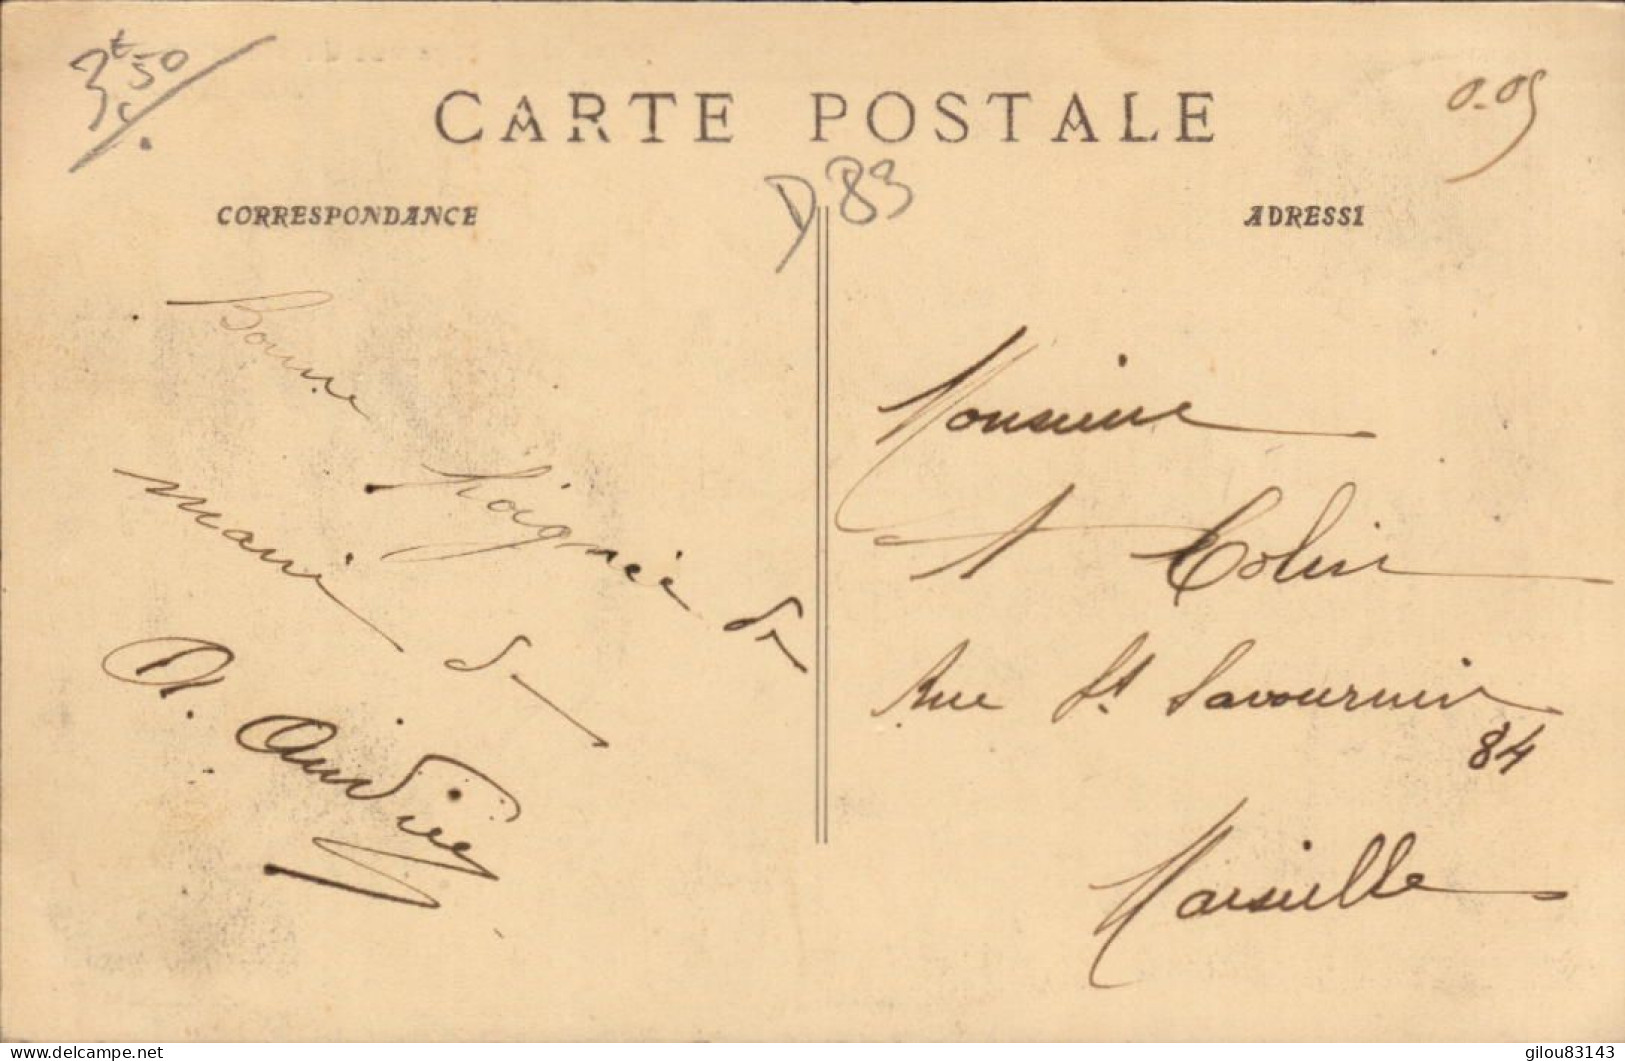 3f50
c.
CARTE POSTALE
0.05
D83
CORRESPONDANCE
ADRESSE
Bonne
Poignée de
main de
A.
Monsieur
A Colin
Rue St Savournin
84
Marseille
delcampe.net
gilou83143